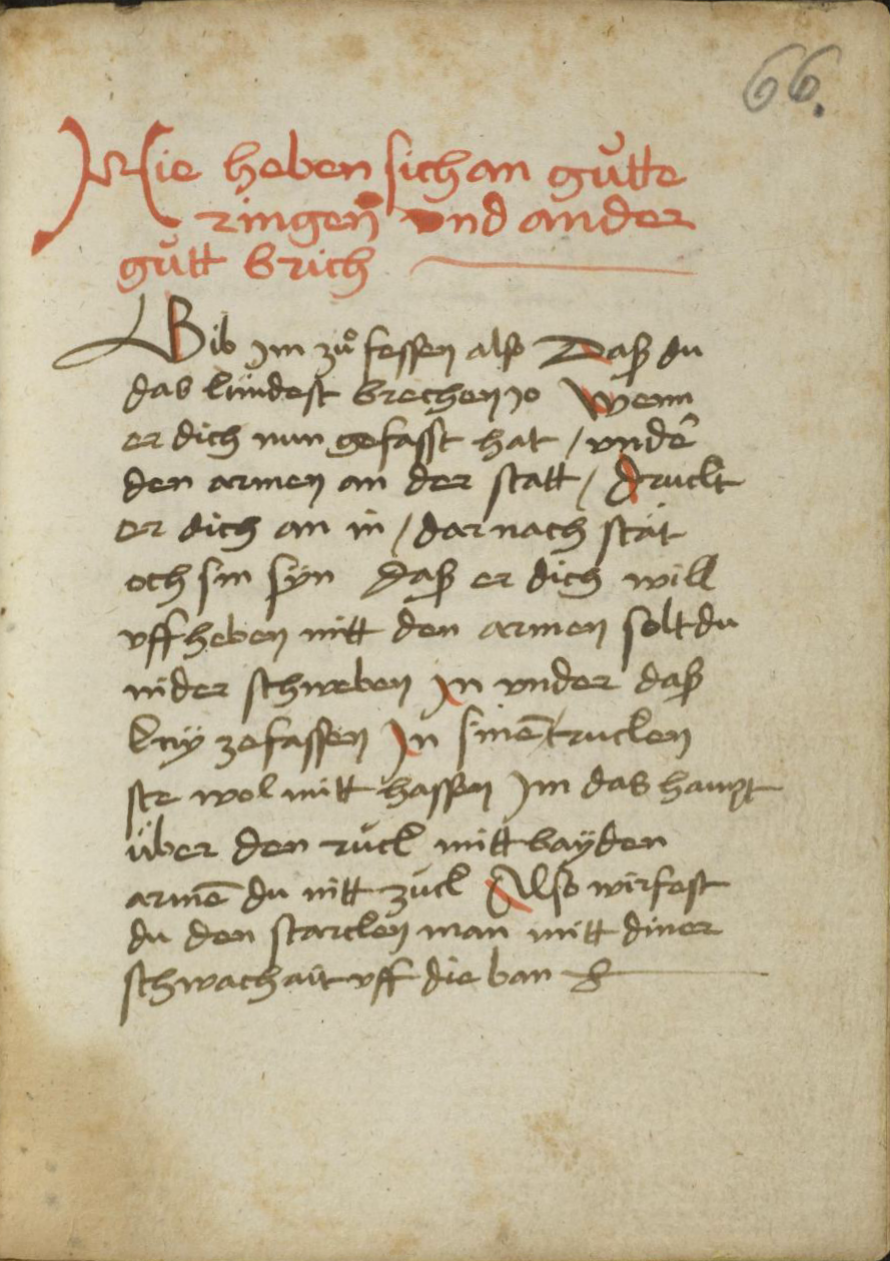 66.
Hie heben sich an gůtte
ringen̄ vnd ander
gůtt brich
Gib Im zů fassen also Daß du
das kündest brechen Jo Wenn
er dich nun gefasst hat / vndē
den armen an der statt / druckt
er dich an in / darnach stät
och sin syn daß er dich will
vffheben mitt den armen solt du
nider schweben In vnder daß
knÿ zefassen In sinē trucken
ste wol mitt hassen Im das haupt
über den růck mitt baÿden
armē du nitt zuck Also wirfest
du den starcken man mitt diner
schwachait vff die ban